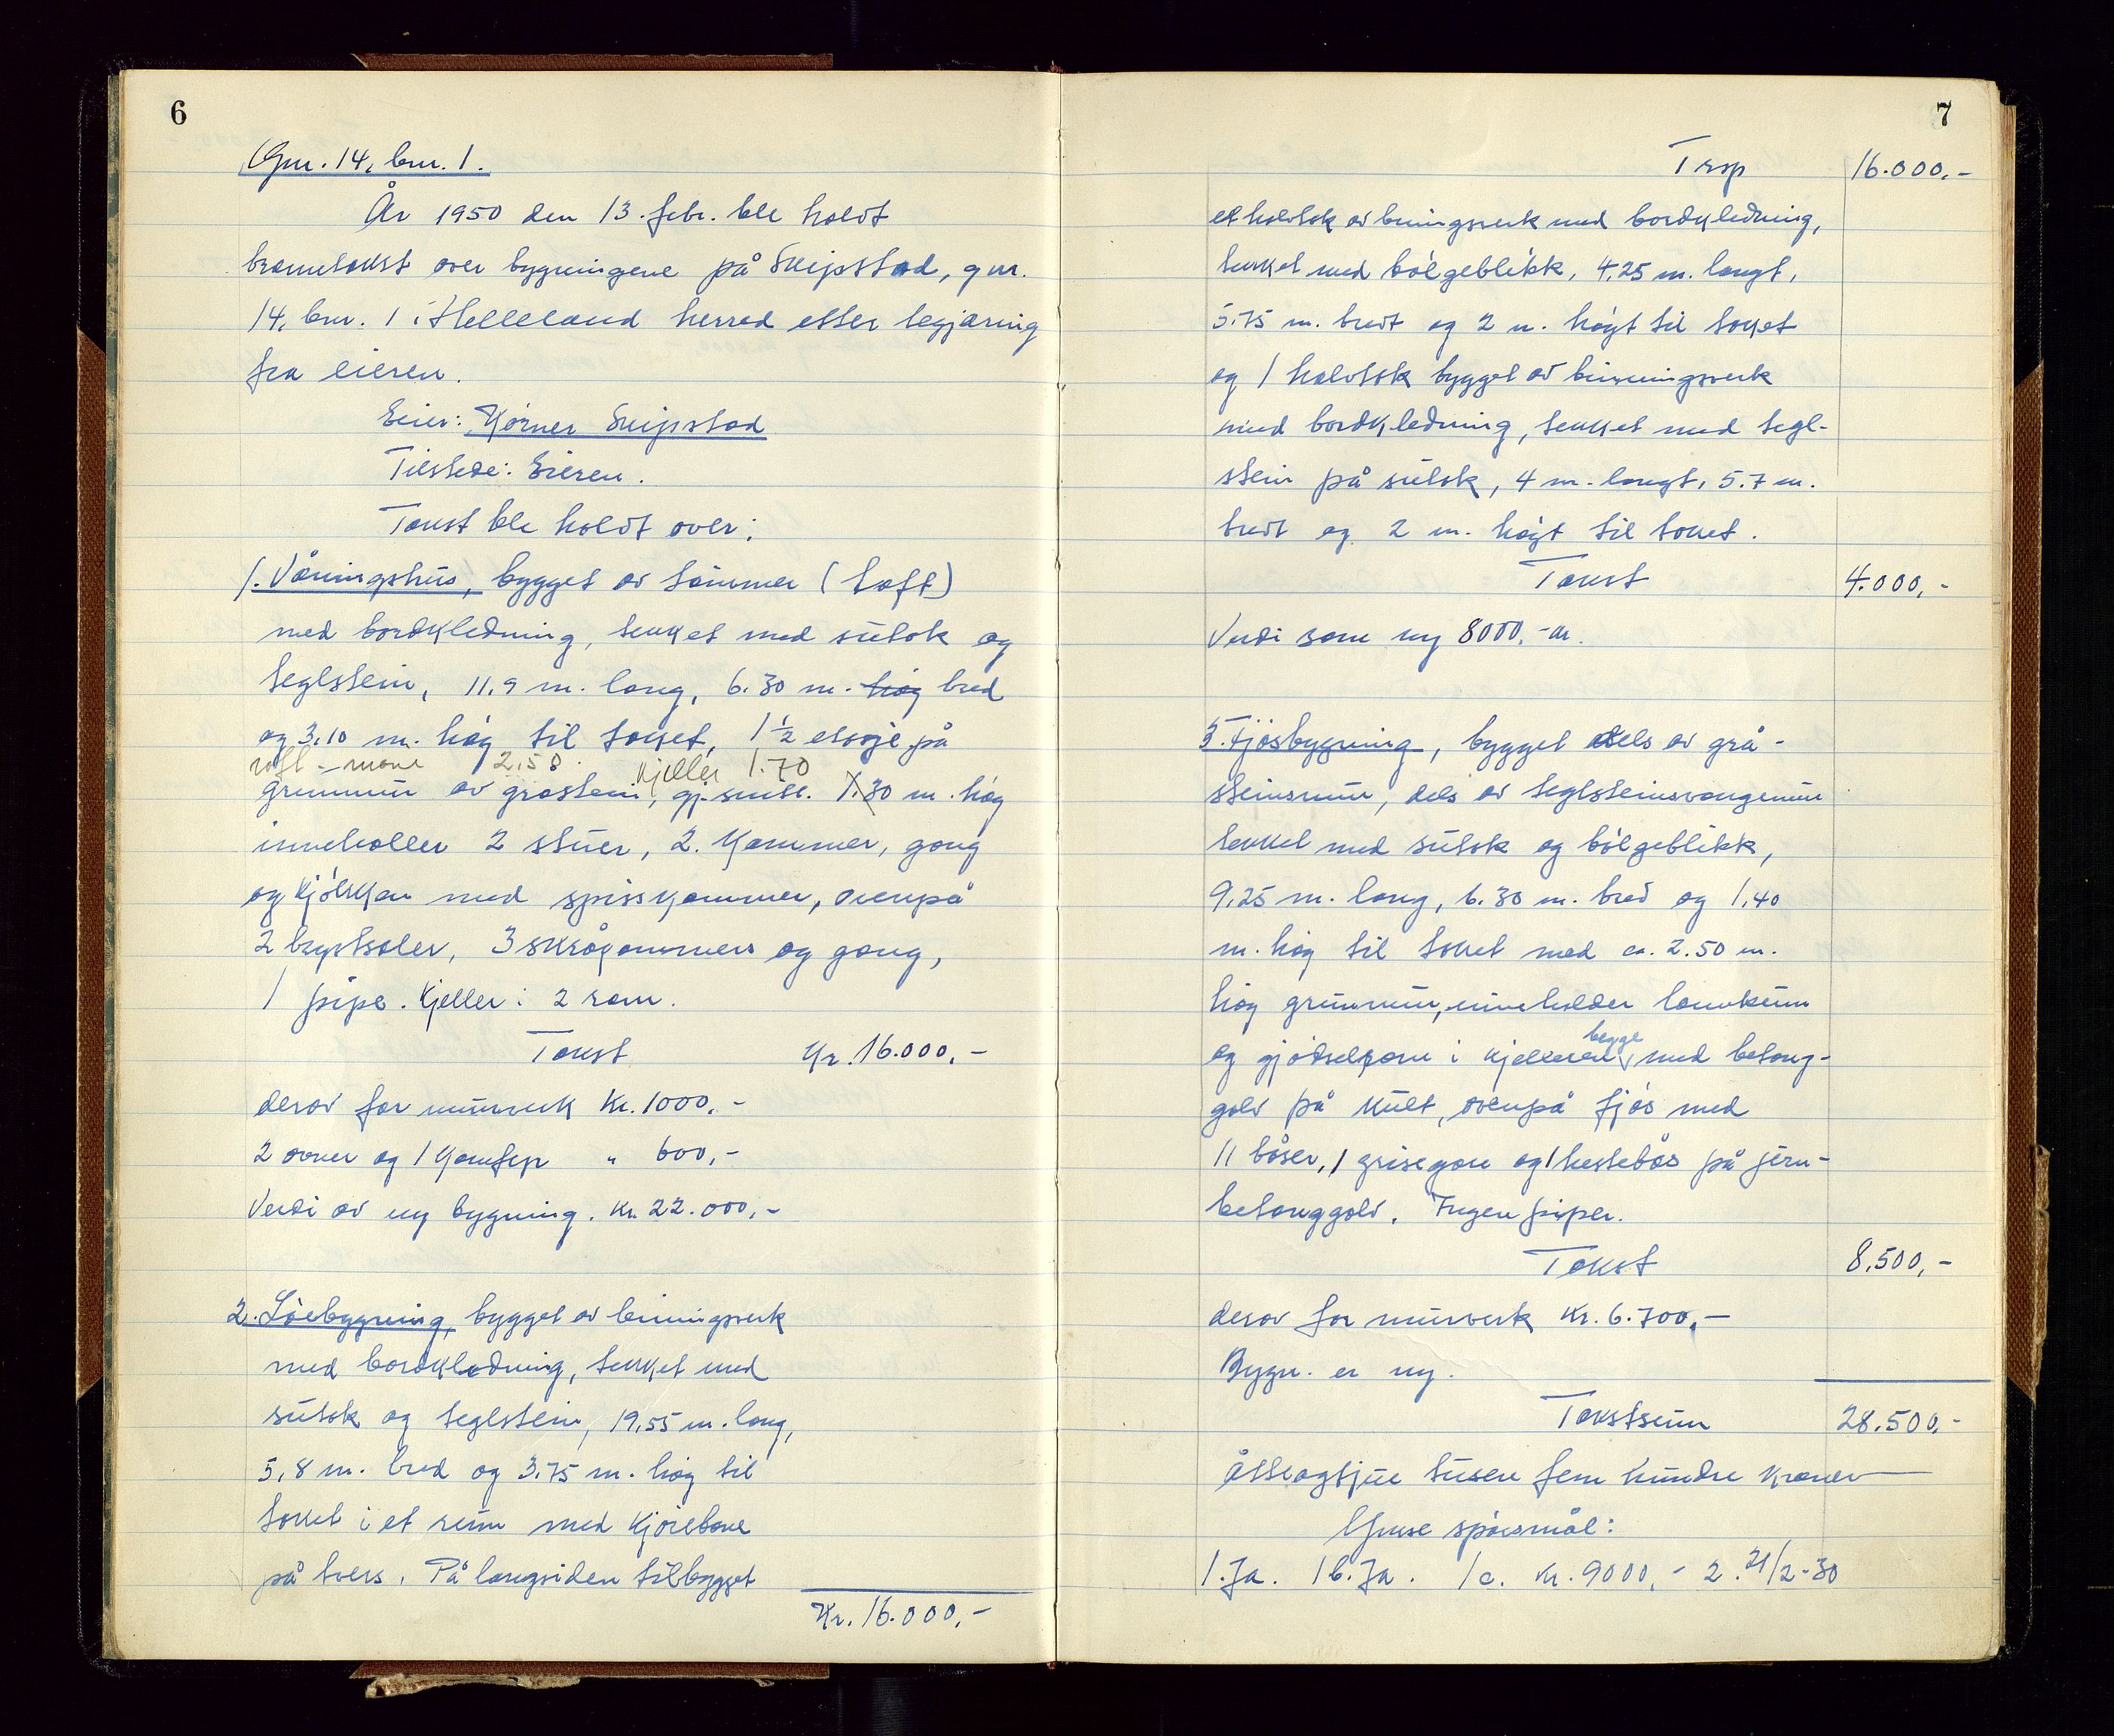 6
Gnr. 14, bnr. 1.
År 1950 den 13. febr. ble holdt
branntakst over bygningene på Skipstad, gnr.
14, bnr. 1 i Helleland herred etter begjæring
fra eieren.
Eier: Kørner Skipstad
Tilstede: Eieren.
Takst ble holdt over:
1. Våningshus, bygget av tømmer (loft)
med bordkledning, tekket med sutak og
teglstein, 11.9 m. lang, 6.30 m. høg bred
og 3.10 m. høg til taket, 1 1/2 etasje på
loft - møne 2,50. kjeller 1.70
grunnmur av gråstein, gj.snitl. 1.30 m. høg
inneholder 2 stuer, 2 kammer, gang
og kjøkken med spisskammer, ovenpå
2 kvistsaler, 3 skråkammers og gang,
1 pipe. Kjeller: 2 rom.
Takst Kr. 16.000,-
derav for murverk Kr. 1000,-
2 ovner og 1 komfyr " 600,-
Verdi av ny bygning. Kr. 22.000,-
2. Løebygning, bygget av binningsverk
med bordkledning, tekket med
sutak og teglstein, 19,55 m. lang,
5,8 m. bred og 3.75 m. høg til
taket i et rum med kjørebane
på tvers. På langsiden tilbygget
Kr. 16.000,-
7
Trsp 16.000,-
et halvtak av binningsverk med bordkledning,
tekket med bølgeblikk, 4,25 m. langt,
5.75 m. bredt og 2 m. høgt til taket
og 1 halvtak bygget av binningsverk
med bordkledning, tekket med tegl-
stein på sutak, 4 m. langt, 5.7 m.
bredt og 2 m. høgt til taket.
Takst 4.000,-
Verdi som ny 8000,- kr.
3. Fjøsbygning, bygget dels av grå-
steinsmur, dels av teglsteinsvangemur
tekket med sutak og bølgeblikk,
9,25 m. lang, 6.30 m. bred og 1,40
m. høg til taket med ca. 2.50 m.
høg grunnmur, inneholder landkum
og gjødselrom i kjelleren begge med betong-
golv på kult, ovenpå fjøs med
11 båser, 1 grisegare og 1 hestebås på jern-
betonggolv. Ingen piper.
Takst 8.500,-
derav for murverk Kr. 6.700,-
Bygn. er ny.
Takstsum 28.500,-
åtteogtjue tusen fem hundre kroner
Ymse spørsmål:
1. Ja. 1b. Ja. 1c. Kr. 9000,- 2. 21/2-30